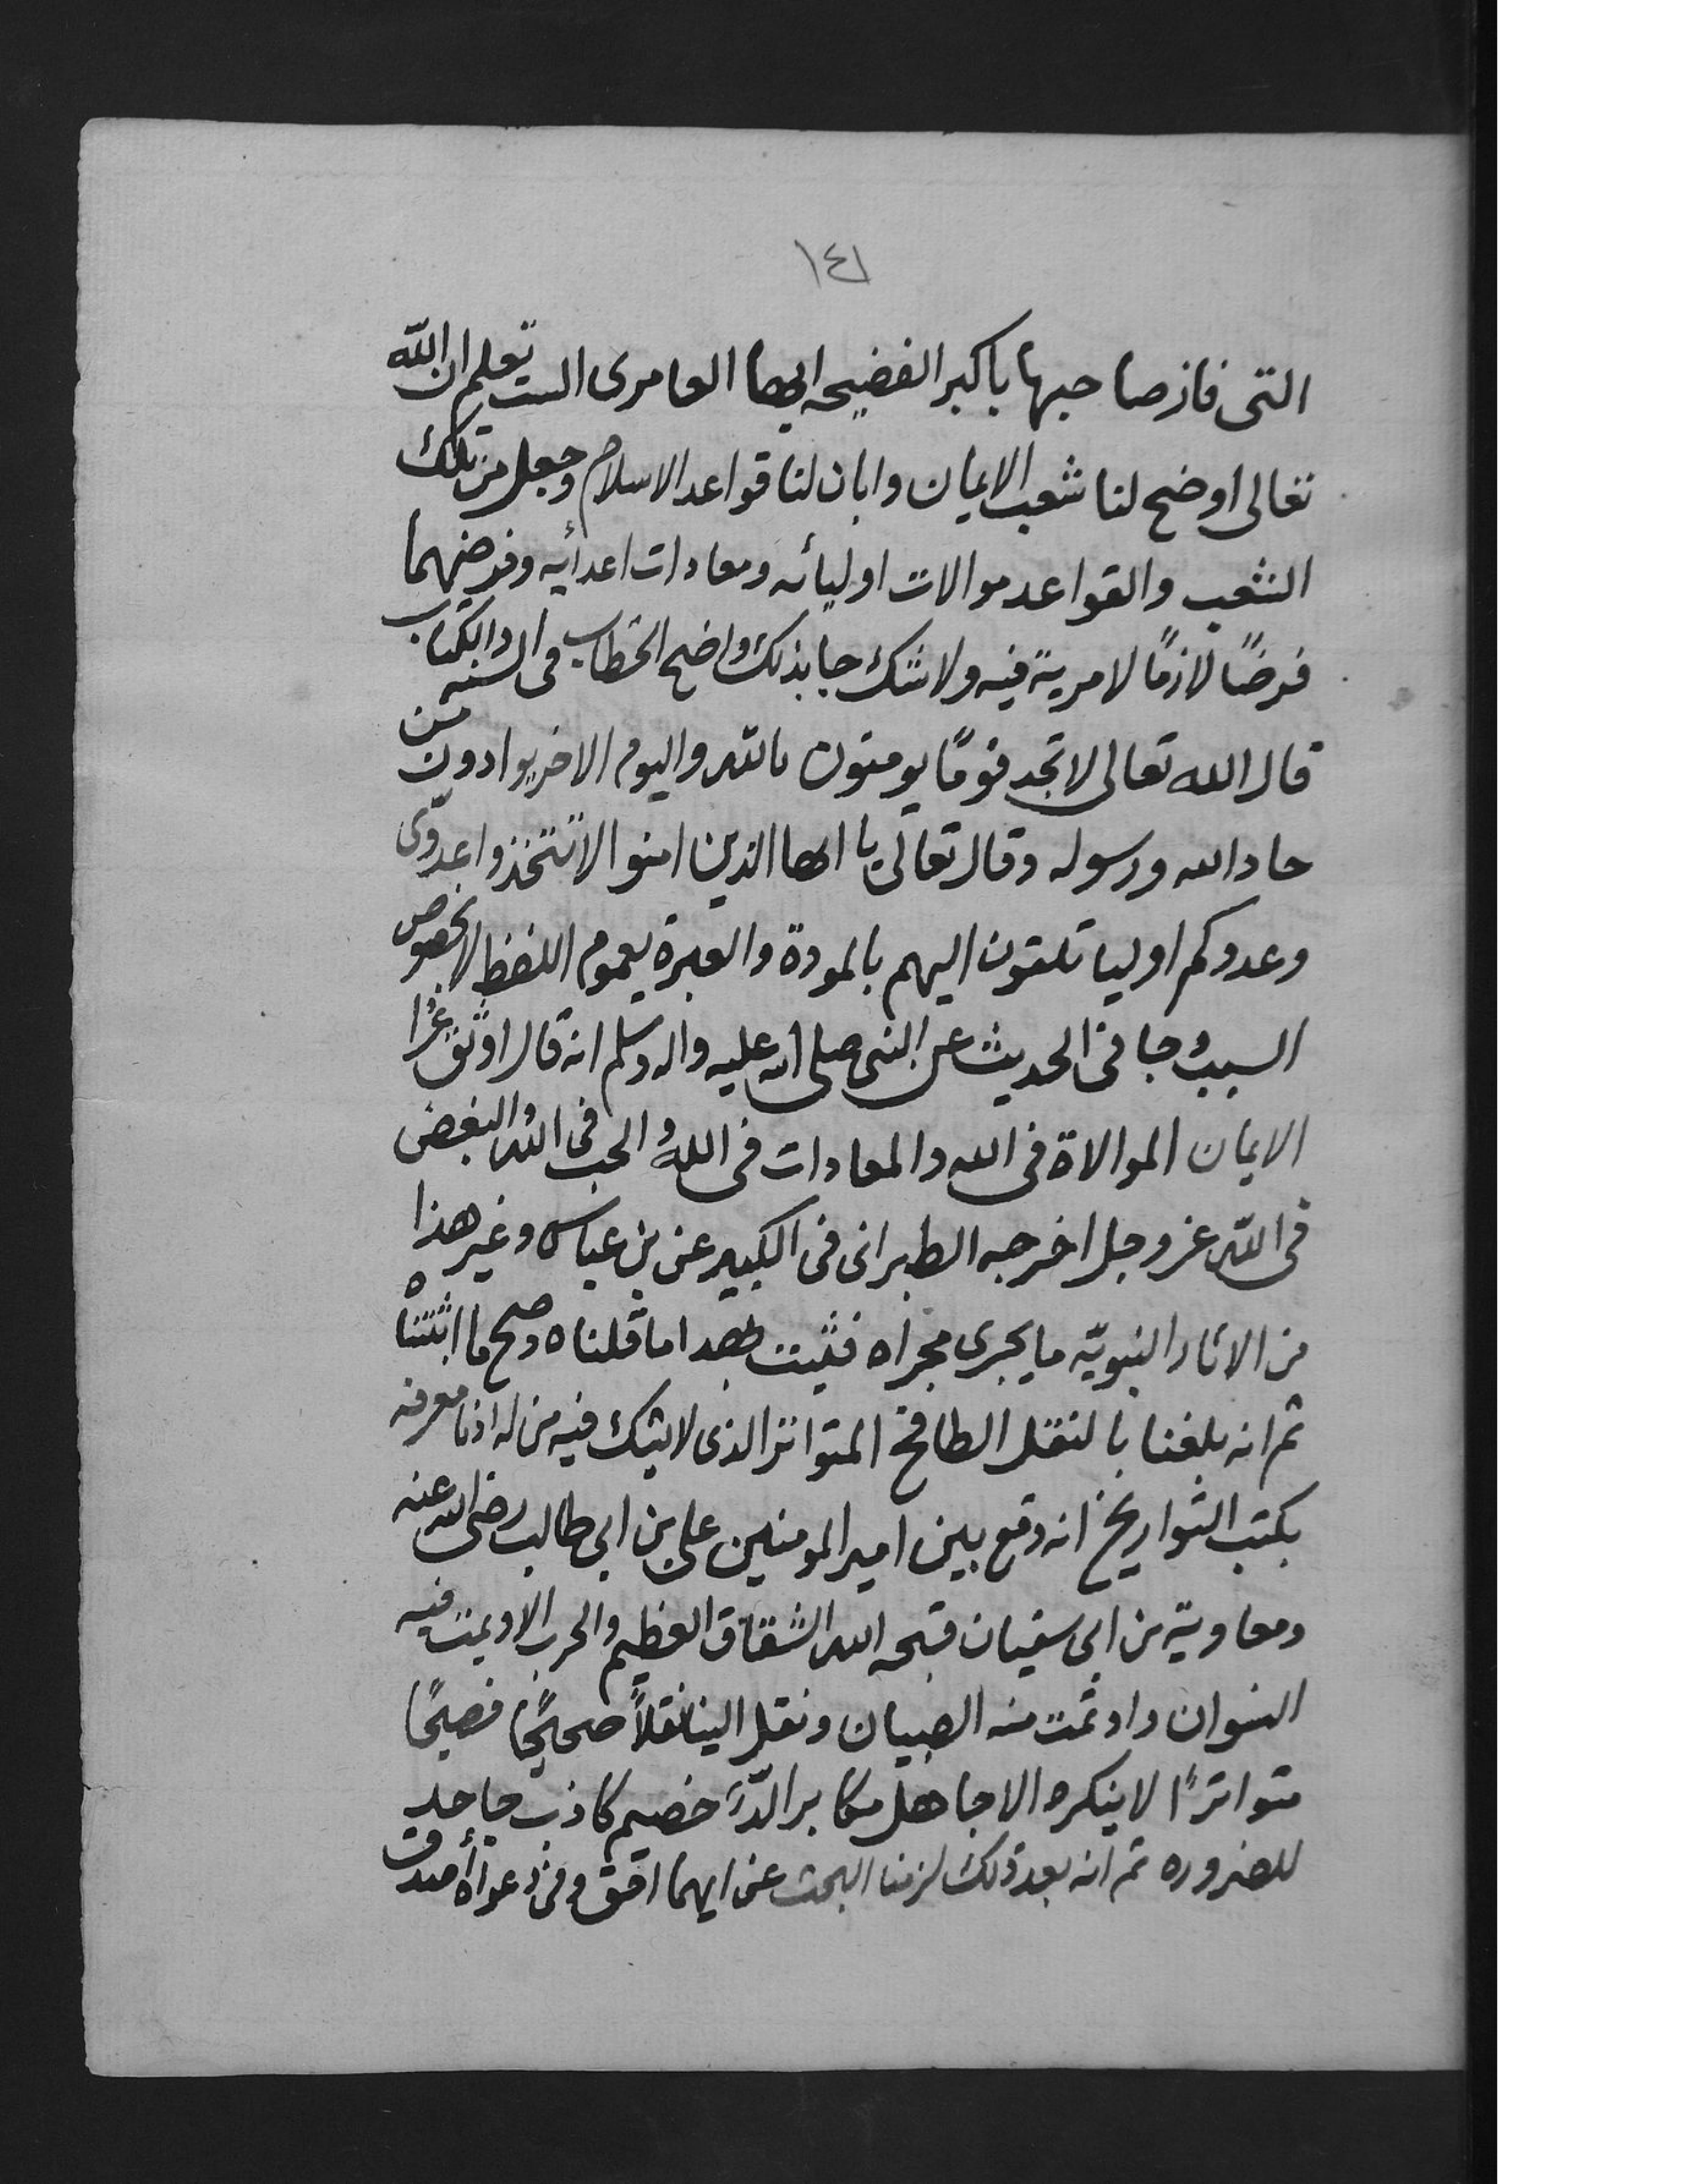 ١٤١
التى فاز صاحبها باكبر الفضيحه ايها العامرى الست تعلم ان الله
تعالى اوضح لنا شعب الايمان وابان لنا قواعد الاسلام وجعل من تلك
الشعب والقواعد موالات اوليائه ومعادات اعدأيه وفرضهما
فرضًا لازمًا لا مرية فيه ولا شك جا بذلك واضح الخطاب فى السنه والكتاب
قال الله تعالى لا تجد قومًا يومنون بالله واليوم الاخر يوادون من
حاد الله ورسوله وقال تعالى يا ايها الذين امنوا لا تتخذوا عدوّى
وعدوكم اوليا تلقون اليهم بالمودة والعبرة بعموم اللفظ لا بخصوص
السبب وجا فى الحديث عن النبى صلى الله عليه واله وسلم انه قال اوثق عُرا
الايمان الموالاة فى الله والمعادات فى الله والحب فى الله والبغض
فى الله عز وجل اخرجه الطبرانى فى الكبير عن بن عباس وغير هذا
من الاثار النبويّه ما يجرى مجراه فثبت بهدا ما قلناه وصح ما اثبتناه
ثم انه بلغنا بالنقل الطافح المتواتر الذى لا يشك فيه من له ادنا معرفه
بكتب التواريخ انه وقع بين امير المومنين على بن ابى طالب رضى الله عنه
ومعاوية بن ابى سفيان قبحه الله الشقاق العظيم والحرب الاويمت فيه
النسوان واوتمت منه الصبيان ونقل الينا نقلاً صحيحًا فصيحًا
متواترًا لا ينكره الا جاهل مكابر الدّ خصيم كاذب جاحد
للضروره ثم انه بعد ذلك لزمنا البحث عن ايهما احق وفى دعواه أصدق